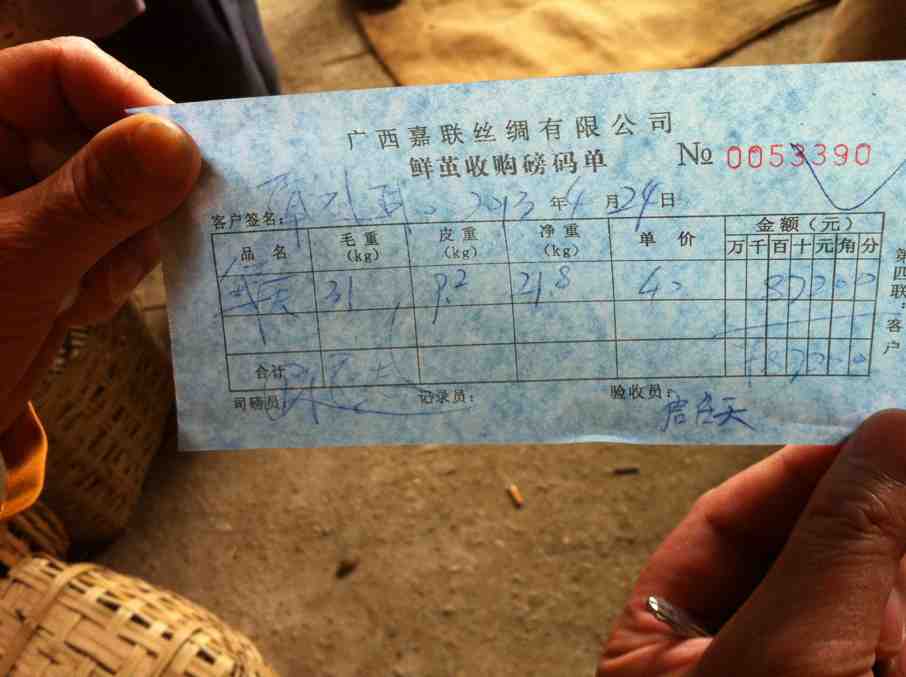 广西嘉联丝绸有限公司
鲜茧收购磅码单 № 0053390
客户签名: 2013年4月24日
品名 毛重(kg) 皮重(kg) 净重(kg) 单价 金额(元)
万 千 百 十 元 角 分
31 9.2 21.8 40 87200
合计 ¥87200
司磅员: 记录员: 验收员:
第四联:客户